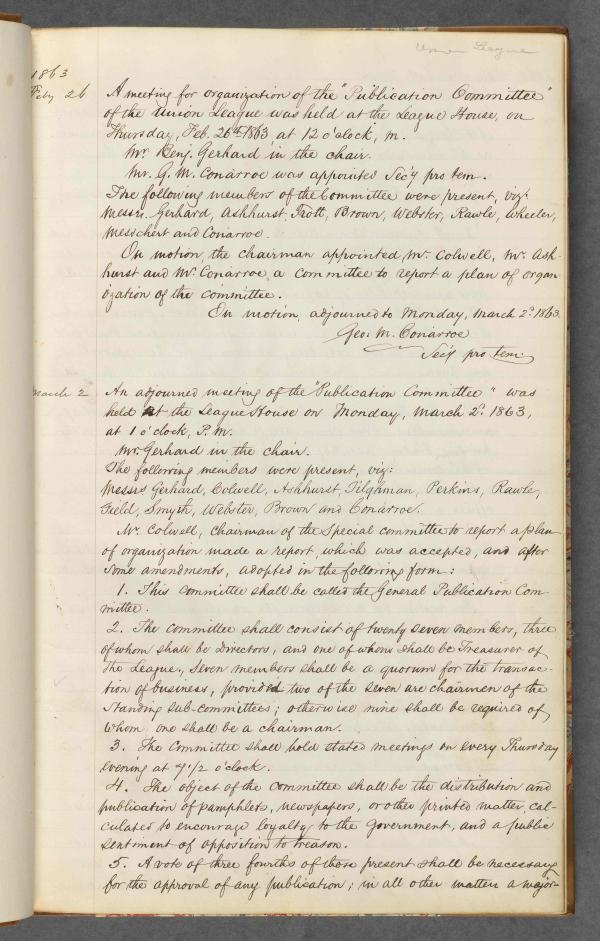 Union League
1863
Feby 26
A meeting for organization of the "Publication Committee"
of the Union League was held at the League House, on
Thursday, Feb. 26th 1863 at 12 o'clock, m.
Mr. Benj. Gerhard in the chair.
Mr. G. M. Conarroe was appointed Sec'y pro tem.
The following members of the Committee were present, viz:
Messrs. Gerhard, Ashhurst, Trott, Brown, Webster, Rawle, Wheeler,
Messchert and Conarroe.
On motion, the chairman appointed Mr. Colwell, Mr. Ash-
hurst and Mr. Conarroe, a committee to report a plan of organ-
ization of the committee.
On motion, adjourned to Monday, March 2d. 1863.
Geo. M. Conarroe
Sec'y pro tem.
March 2
An adjourned meeting of the "Publication Committee" was
held at the League House on Monday, March 2d. 1863,
at 1 o'clock, P.M.
Mr. Gerhard in the chair.
The following members were present, viz:
Messrs Gerhard, Colwell, Ashhurst, Tilghman, Perkins, Rawle,
Field, Smyth, Webster, Brown and Conarroe.
Mr. Colwell, Chairman of the Special committee to report a plan
of organization made a report, which was accepted, and after
some amendments, adopted in the following form:
1. This committee shall be called the General Publication Com-
mittee.
2. The committee shall consist of twenty seven members, three
of whom shall be Directors, and one of whom shall be Treasurer of
the League. Seven members shall be a quorum for the transac-
tion of business, provided two of the seven are chairmen of the
standing sub-committees; otherwise nine shall be required of
whom one shall be a chairman.
3. The Committee shall hold stated meetings on every Thursday
evening at 7 1/2 o'clock.
4. The object of the committee shall be the distribution and
publication of pamphlets, newspapers, or other printed matter, cal-
culated to encourage loyalty to the Government, and a public
sentiment of opposition to treason.
5. A vote of three fourths of those present shall be necessary
for the approval of any publication; in all other matters a major-